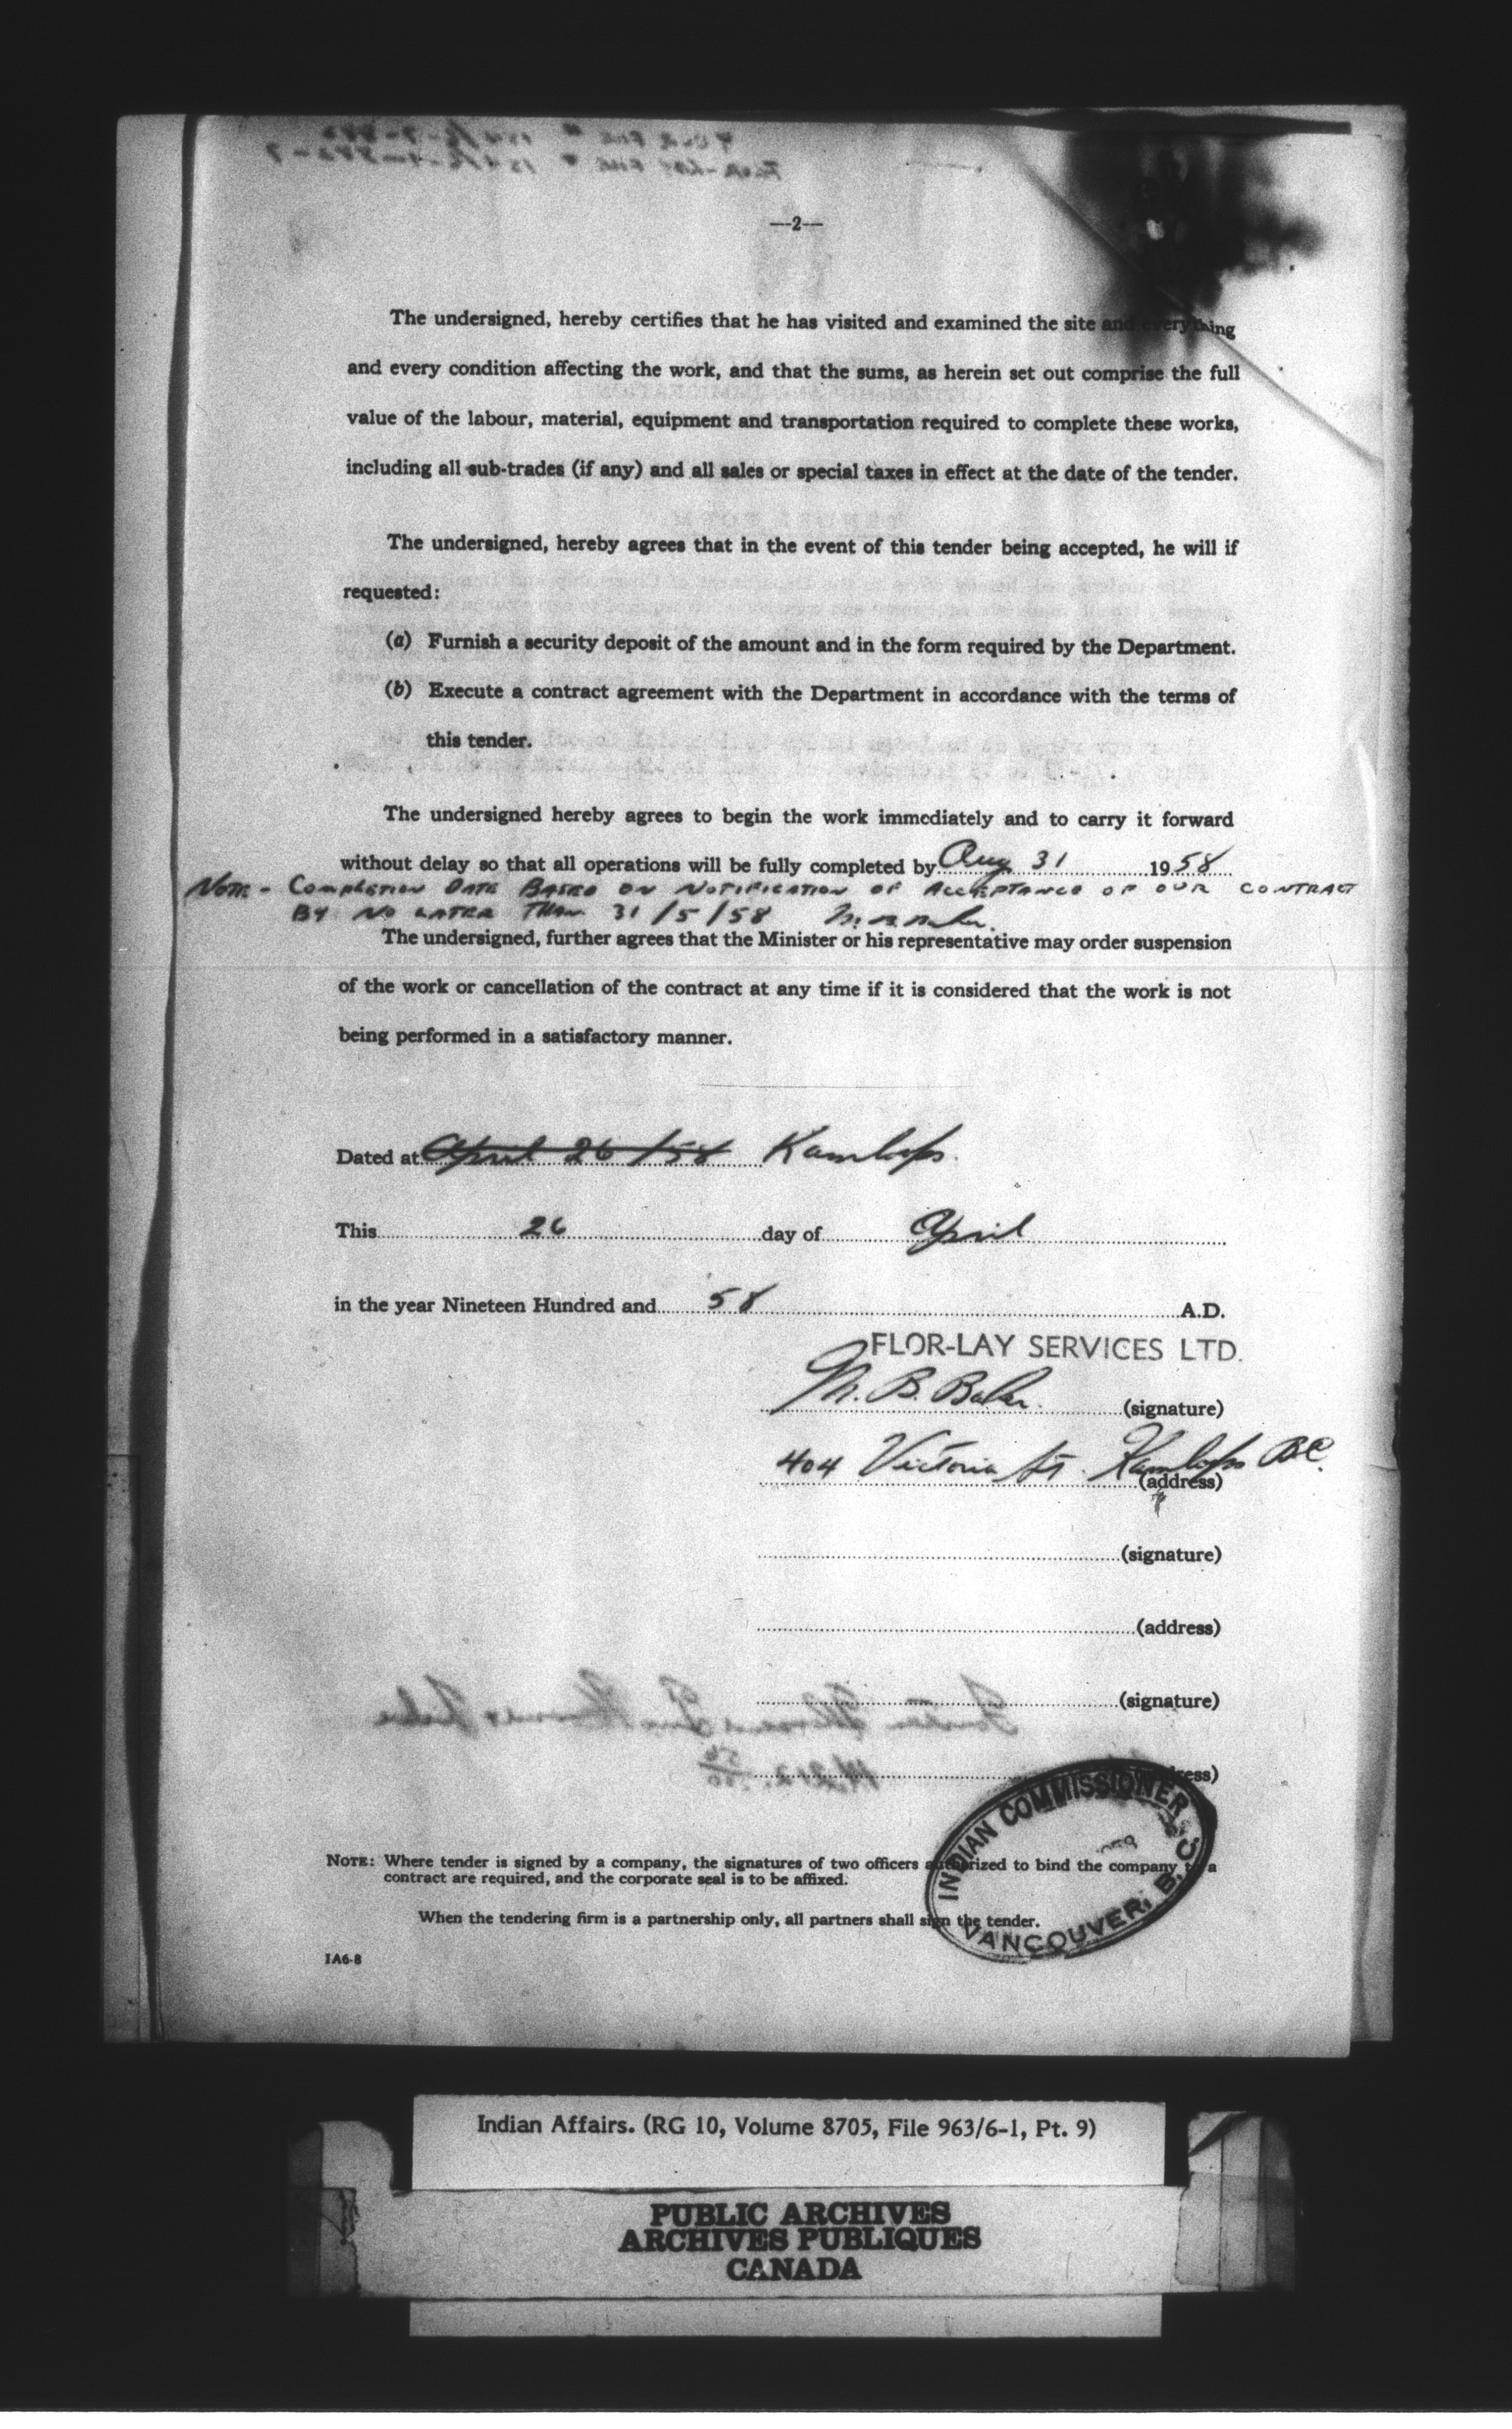 —2—
The undersigned, hereby certifies that he has visited and examined the site and everything
and every condition affecting the work, and that the sums, as herein set out comprise the full
value of the labour, material, equipment and transportation required to complete these works,
including all sub-trades (if any) and all sales or special taxes in effect at the date of the tender.
The undersigned, hereby agrees that in the event of this tender being accepted, he will if
requested:
(a) Furnish a security deposit of the amount and in the form required by the Department.
(b) Execute a contract agreement with the Department in accordance with the terms of
this tender.
The undersigned hereby agrees to begin the work immediately and to carry it forward
without delay so that all operations will be fully completed by Aug 31 1958
NOTE - COMPLETION DATE BASED ON NOTIFICATION OF ACCEPTANCE OF OUR CONTRACT
BY NO LATER THAN 31/5/58
The undersigned, further agrees that the Minister or his representative may order suspension
of the work or cancellation of the contract at any time if it is considered that the work is not
being performed in a satisfactory manner.
Dated at April 26/58 Kamloops.
This 26 day of April
in the year Nineteen Hundred and 58 A.D.
FLOR-LAY SERVICES LTD.
M. B. Baker (signature)
404 Victoria St. Kamloops BC.
(address)
(signature)
(address)
(signature)
INDIAN COMMISSIONER
VANCOUVER, B.C.
NOTE: Where tender is signed by a company, the signatures of two officers authorized to bind the company to a
contract are required, and the corporate seal is to be affixed.
When the tendering firm is a partnership only, all partners shall sign the tender.
IA6-8
Indian Affairs. (RG 10, Volume 8705, File 963/6-1, Pt. 9)
PUBLIC ARCHIVES
ARCHIVES PUBLIQUES
CANADA